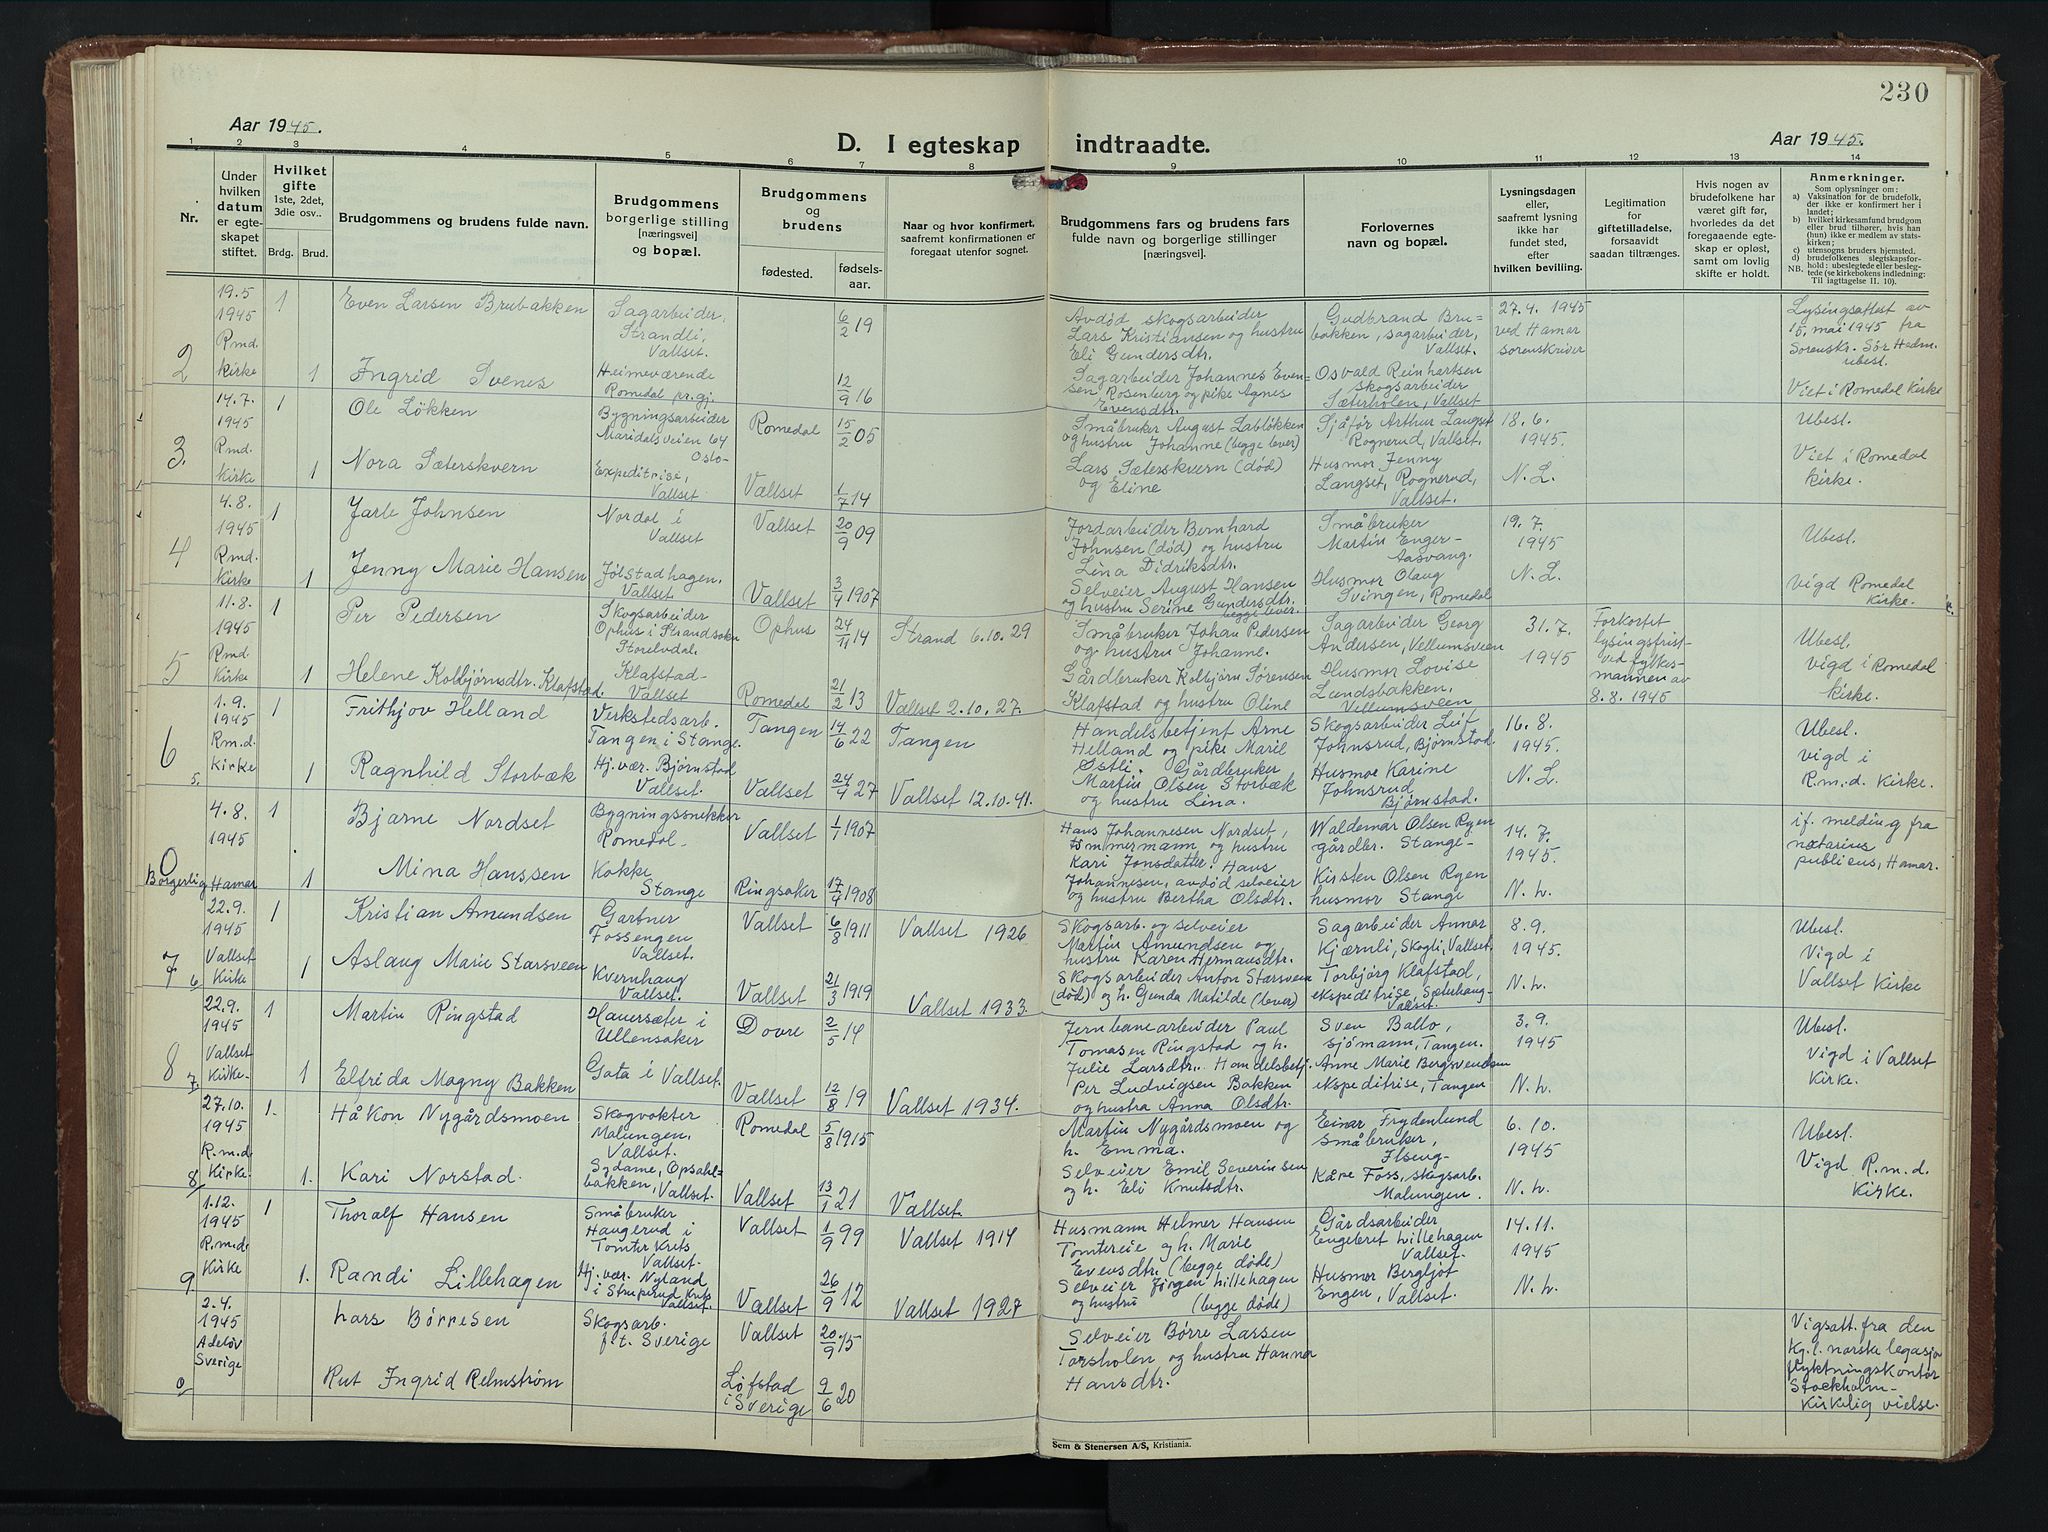 230
Aar 1945.
D. I egteskap indtraadte.
Aar 1945.
1 2 3 4 5 6 7 8 9 10 11 12 13 14
Nr.
Under hvilken datum er egteskapet stiftet.
Hvilket gifte 1ste, 2det, 3die osv..
Brdg. Brud.
Brudgommens og brudens fulde navn.
Brudgommens borgerlige stilling [næringsvei] og bopæl.
Brudgommens og brudens
fødested. fødsels-aar.
Naar og hvor konfirmert, saafremt konfirmationen er foregaat utenfor sognet.
Brudgommens fars og brudens fars fulde navn og borgerlige stillinger [næringsvei].
Forlovernes navn og bopæl.
Lysningsdagen eller, saafremt lysning ikke har fundet sted, efter hvilken bevilling.
Legitimation for giftetilladelse, forsaavidt saadan tiltrænges.
Hvis nogen av brudefolkene har været gift før, hvorledes da det foregaaende egteskap er opløst, samt om lovlig skifte er holdt.
Anmerkninger.
Som oplysninger om:
a) Vaksination for de brudefolk, der ikke er konfirmert her i landet;
b) hvilket kirkesamfund brudgom eller brud tilhører, hvis han (hun) ikke er medlem av statskirken;
c) utensogns bruders hjemsted.
d) brudefolkenes slegtskapsforhold: ubeslegtede eller beslegtede (se kirkebokens indledning: Til iagttagelse II. 10).
NB.
2
19.5 1945 Rmd. kirke
1
Even Larsen Brubakken
Sagarbeider, Strandli, Vallset.
6/2 19
Avdød skogsarbeider Lars Kristiansen og hustru Eli Gundersdtr.
Gudbrand Brubakken, sagarbeider, Vallset.
27.4. 1945 ved Hamar sorenskriver
Lysingsattest av 15. mai 1945 fra Sorenskr. Sør Hedm. ubesl.
1
Ingrid Svenes
Heimeværende Romedal pr.gj.
12/9 16
Sagarbeider Johannes Evensen Rosenberg og pike Agnes Evensdtr.
Osvald Reinhartsen skogsarbeider Sæterholen, Vallset
Viet i Romedal Kirke
3.
14.7. 1945 Rmd. Kirke
1
Ole Løkken
Bygningsarbeider Maridalsveien 64 Oslo-
Romedal
15/2 05
Småbruker August Labløkken og hustru Johanne (begge lever)
Sjåfør Arthur Langset Rognerud, Vallset.
18.6. 1945.
Ubesl.
1
Nora Sæterskvern
Expeditrise, Vallset
Vallset
1/7 14
Lars Sæterskvern (død) og Eline
Husmor Jenny Langset, Rognerud, Vallset.
N. L.
Viet i Romedal kirke.
4
4.8. 1945 Rmd. Kirke
1
Jarle Johnsen
Nordal i Vallset
Vallset
20/9 09
Jordarbeider Bernhard Johnsen (død) og hustru Lina Didriksdtr.
Småbruker Martin Enger- Aasvang.
19.7. 1945
Ubesl.
1
Jenny Marie Hansen
Jølstadhagen. Vallset
Vallset
3/4 1907
Selveier August Hansen og hustru Serine Gundersdtr. begge lever.
Husmor Olaug Svingen, Romedal
N. L.
vigd Romedal Kirke.
5
11.8. 1945 Rmd Kirke
1
Per Pedersen
Skogsarbeider Ophus i Strandsokn Storelvdal.
Ophus
24/11 14
Strand 6.10.29
Småbruker Johan Pedersen og hustru Johanne.
Sagarbeider Georg Andersen, Vellumsveen
31.7. 1945
Forkortet lysingsfrist ved fylkesmannen av 8.8.1945
Ubesl. vigd i Romedal kirke.
1
Helene Kolbjørnsdtr. Klafstad.
Klafstad- Vallset
Romedal
21/2 13
Vallset 2.10.27.
Gårdbruker Kolbjørn Sørensen Klafstad og hustru Oline
Husmor Lovise Lundsbakken, Vellumsveen
6 5.
1.9. 1945 R.m.d. Kirke
1
Frithjov Helland
Verkstedsarb. Tangen i Stange.
Tangen
14/6 22
Tangen
Handelsbetjent Arne Helland og pike Marie Østli.
Skogsarbeider Leif Johnsrud, Bjørnstad.
16.8. 1945.
Ubesl. vigd i R.m.d. Kirke.
1
Ragnhild Storbæk
Hj.vær. Bjørnstad Vallset.
Vallset
24/4 27
Vallset 12.10.41.
Gårdbruker Martin Olsen Storbæk og hustru Lina.
Husmor Karine Johnsrud Bjørnstad.
N. L.
0 Borgerlig
4.8. 1945 Hamar
1
Bjarne Nordset
Bygningssnekker Romedal.
Vallset
1/1 1907
Hans Johannesen Nordset, tømmermann og hustru Kari Jonsdatter.
Waldemar Olsen Ryen gårdbr. Stange-
14.7. 1945.
if. melding fra notarius publicus, Hamar.
1
Mina Hanssen
Kokke Stange
Ringsaker
17/4 1908
Hans Johannesen, avdød selveier og hustru Bertha Olsdtr.
Kirsten Olsen Ryen husmor Stange
N. L.
7 6
22.9. 1945 Vallset Kirke
1
Kristian Amundsen
Gartner Fossengen Vallset.
Vallset
6/8 1911
Vallset 1926
Skogsarb. og selveier Martin Amundsen og hustru Karen Hermansdtr.
Sagarbeider Annar Kjærnli, Skogli, Vallset.
8.9. 1945.
Ubesl. Vigd i Vallset Kirke
1
Aslaug Marie Starsveen
Kvernhaug Vallset.
Vallset
21/3 1919
Vallset 1933.
Skogsarbeider Anton Starsveen (død) og h. Gunda Matilde (lever)
Torbjørg Klafstad, ekspeditrise, Sæterhaug- Vallset.
N. L.
8 7.
22.9. 1945 Vallset Kirke-
1
Martin Ringstad
Hauersæter i Ullensaker
Dovre
2/5 14
Jernbanearbeider Paul Tomasen Ringstad og h. Julie Larsdtr.
Sven Ballo, sjømann, Tangen.
3.9. 1945
Ubesl. Vigd i Vallset Kirke.
1
Elfrida Magny Bakken
Gata i Vallset.
Vallset
12/8 19
Vallset 1934.
Handelsbetj. Per Ludvigsen Bakken og hustru Anna Olsdtr.
Anne Marie Bergsvendsen ekspeditrise, Tangen
N. L.
8
27.10. 1945 R.m.d Kirke.
1.
Håkon Nygårdsmoen
Skogvokter Malungen, Vallset.
Romedal
5/8 1915
Martin Nygårdsmoen og h. Emma.
Einar Frydenlund Småbruker, Ilseng-
6.10. 1945
Ubesl. Vigd R.m.d. Kirke.
1.
Kari Norstad.
Sydame, Opsahlbakken, Vallset.
Vallset
13/1 21
Vallset.
Selveier Emil Severinsen og h. Eli Knutsdtr.
Kåre Foss, skogsarb. Malungen.
N. L.
9
1.12. 1945 R.m.d. Kirke
1
Thoralf Hansen
Småbruker Haugerud i Tomter Krets Vallset.
Vallset
1/9 99
Vallset 1914
Husmann Helmer Hansen Tomtereie og h. Marie Evensdtr. (begge døde)
Gårdsarbeider Engebret Lillehagen Vallset.
14.11. 1945
1.
Randi Lillehagen
Hj. vær. Nyland i Struperud Krets Vallset.
Vallset
26/9 12
Vallset 1927
Selveier Jørgen Lillehagen og hustru (begge døde)
Husmor Bergljot Engen, Vallset.
N. L.
0
2.4. 1945 Adeløv Sverige
Lars Børresen
Skogsarb. f.t. Sverige
Vallset
20/9 15
Selveier Børre Larsen Torsholen og hustru Hanna Hansdtr.
Vigsatt. fra den Kgl. norske legasjon flyktningskontor Stockholm- Kirkelig vielse.
Rut Ingrid Relmstrøm
Løfstad i Sverige
9/6 20
Sem & Stenersen A/S, Kristiania.